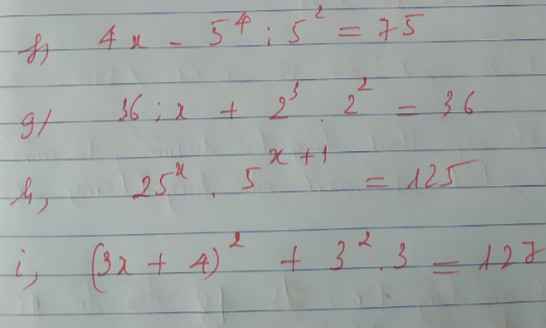 f, 4x - 5⁴ : 5² = 75
g/ 36 : x + 2³ . 2² = 36
h, 25ˣ . 5ˣ⁺¹ = 125
i, (3x + 4)² + 3² . 3 = 127